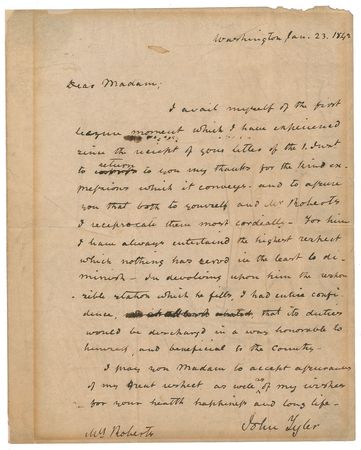 Washington Jan. 23. 1842
Dear Madam;
I avail myself of the first
leizure moment which I have experienced
since the receipt of your letter of the 1. Inst
return
to to you my thanks for the kind ex-
pressions which it conveys and to assure
you that both to yourself and Mr Roberts
I reciprocate them most cordially - For him
I have always entertained the highest respect
which nothing has served in the least to de-
minish - In devolving upon him the respon-
sible station which he fills, I had entire confi-
dence, that its duties
would be discharged in a way honorable to
himself, and beneficial to the Country -
I pray you Madam to accept assurances
as
of my great respect as well of my wishes
for your health happiness and long life -
John Tyler
Mrs Roberts